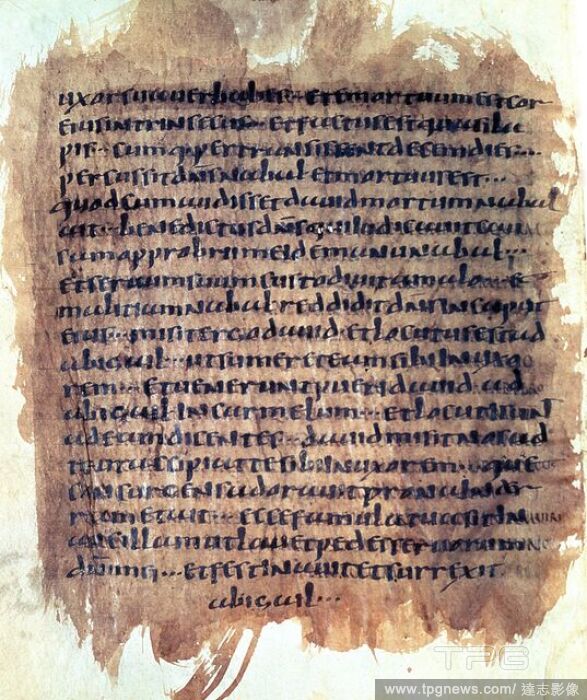 uxor sua uerba hec·· et emortuum est cor
eius intrinsecus·· et factus est quasi la
pis·· cumq; pertransissent decem dies··
percussit dn̄s nabal et mortuus est···
quod cum audisset dauid mortuum nabal
ait·· benedictus dn̄s qui iudicauit cau
sam opprobrii mei de manu nabal··
et seruum suum custodiuit a malo·· et
malitiam nabal reddidit dn̄s in caput
eius·· misit ergo dauid· et locutus est ad
abigail· ut sumeret eam sibi in uxo
rem·· et uenerunt pueri dauid ad
abigail in carmelum·· et locuti sunt
ad eam dicentes·· dauid misit nos ad
te ut accipiat te sibi in uxorem·· que
consurgens adorauit prona in ter
ram et ait·· ecce famula tua sit in an
cillam ut lauet pedes seruorum
dn̄i mei··· et festinauit et surrexit
abigail···
TPG
www.tpgnews.com/ 達志影像